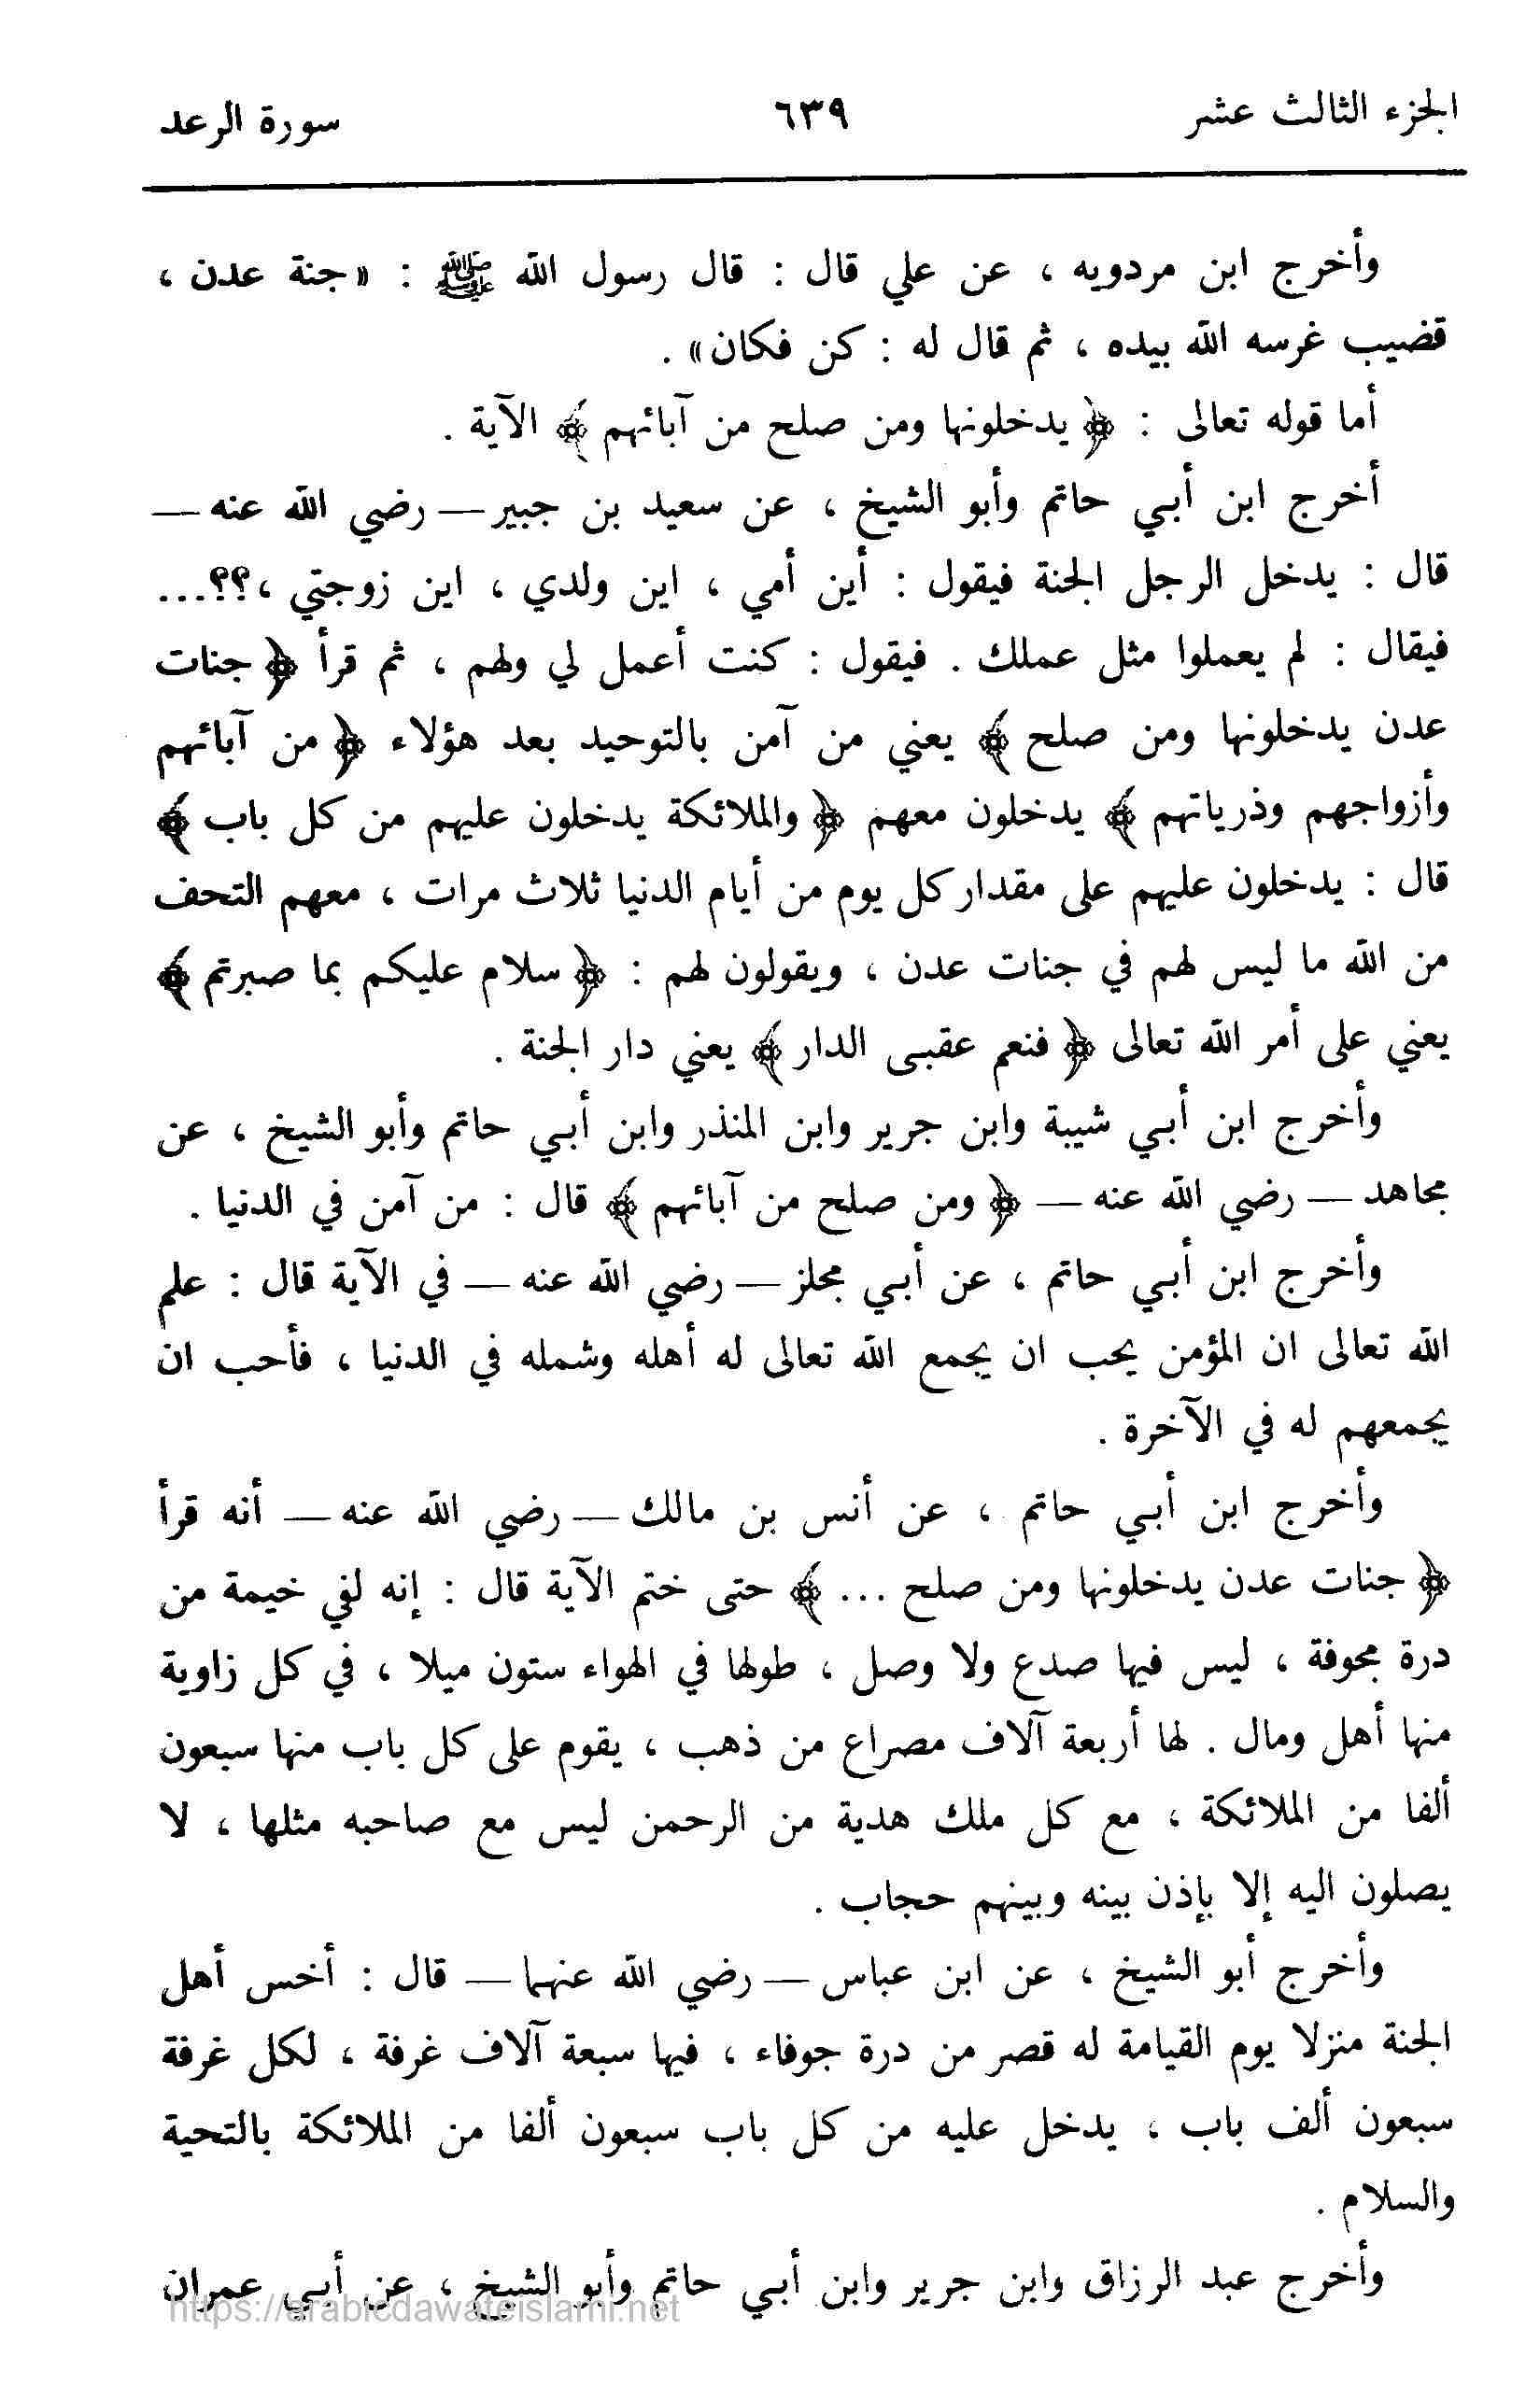 الجزء الثالث عشر ٦٣٩ سورة الرعد
وأخرج ابن مردويه ، عن علي قال : قال رسول الله ﷺ : «جنة عدن ،
قضيب غرسه الله بيده ، ثم قال له : كن فكان» .
أما قوله تعالى : ﴿ يدخلونها ومن صلح من آبائهم ﴾ الآية .
أخرج ابن أبي حاتم وأبو الشيخ ، عن سعيد بن جبير — رضي الله عنه —
قال : يدخل الرجل الجنة فيقول : أين أمي ، اين ولدي ، اين زوجتي ،؟؟...
فيقال : لم يعملوا مثل عملك . فيقول : كنت أعمل لي ولهم ، ثم قرأ ﴿ جنات
عدن يدخلونها ومن صلح ﴾ يعني من آمن بالتوحيد بعد هؤلاء ﴿ من آبائهم
وأزواجهم وذرياتهم ﴾ يدخلون معهم ﴿ والملائكة يدخلون عليهم من كل باب ﴾
قال : يدخلون عليهم على مقدار كل يوم من أيام الدنيا ثلاث مرات ، معهم التحف
من الله ما ليس لهم في جنات عدن ، ويقولون لهم : ﴿ سلام عليكم بما صبرتم ﴾
يعني على أمر الله تعالى ﴿ فنعم عقبى الدار ﴾ يعني دار الجنة .
وأخرج ابن أبي شيبة وابن جرير وابن المنذر وابن أبي حاتم وأبو الشيخ ، عن
مجاهد — رضي الله عنه — ﴿ ومن صلح من آبائهم ﴾ قال : من آمن في الدنيا .
وأخرج ابن أبي حاتم ، عن أبي مجلز — رضي الله عنه — في الآية قال : علم
الله تعالى ان المؤمن يحب ان يجمع الله تعالى له أهله وشمله في الدنيا ، فأحب ان
يجمعهم له في الآخرة .
وأخرج ابن أبي حاتم ، عن أنس بن مالك — رضي الله عنه — أنه قرأ
﴿ جنات عدن يدخلونها ومن صلح ... ﴾ حتى ختم الآية قال : إنه لفي خيمة من
درة مجوفة ، ليس فيها صدع ولا وصل ، طولها في الهواء ستون ميلا ، في كل زاوية
منها أهل ومال . لها أربعة آلاف مصراع من ذهب ، يقوم على كل باب منها سبعون
ألفا من الملائكة ، مع كل ملك هدية من الرحمن ليس مع صاحبه مثلها ، لا
يصلون اليه إلا بإذن بينه وبينهم حجاب .
وأخرج أبو الشيخ ، عن ابن عباس — رضي الله عنهما — قال : أخس أهل
الجنة منزلا يوم القيامة له قصر من درة جوفاء ، فيها سبعة آلاف غرفة ، لكل غرفة
سبعون ألف باب ، يدخل عليه من كل باب سبعون ألفا من الملائكة بالتحية
والسلام .
وأخرج عبد الرزاق وابن جرير وابن أبي حاتم وأبو الشيخ ، عن أبي عمران
https://arabicdawateislami.net